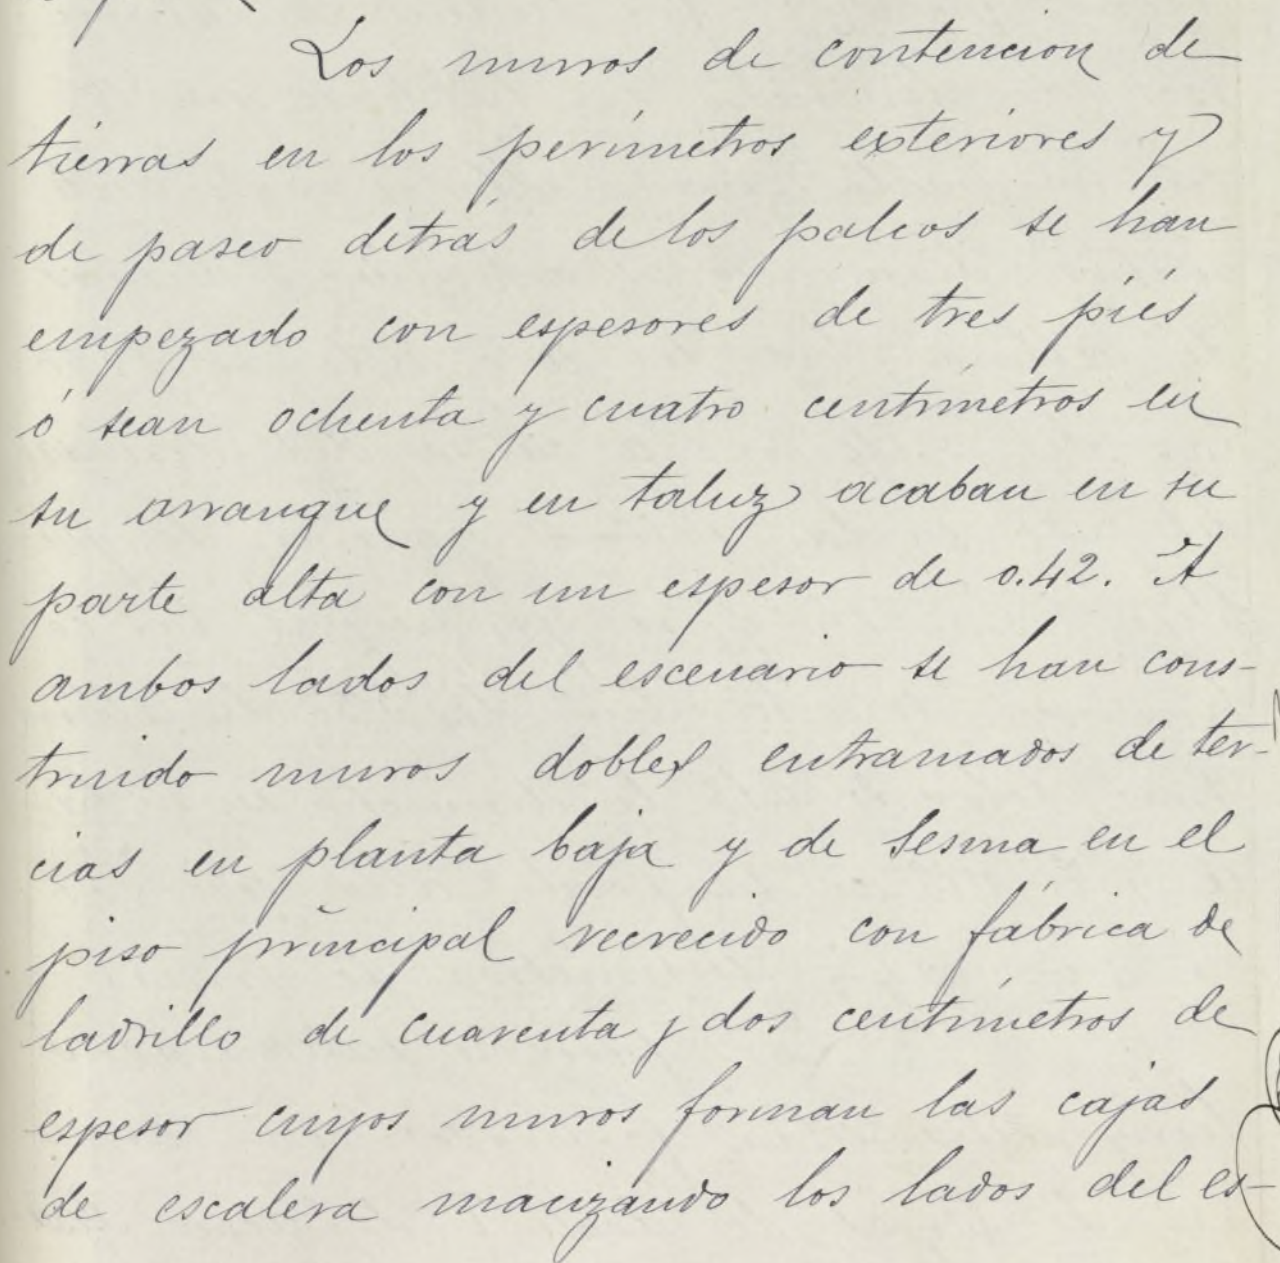 Los muros de contencion de
tierras en los perímetros exteriores y
de paseo detrás de los palcos se han
empezado con espesores de tres piés
ó sean ochenta y cuatro centímetros en
su arranque y en taluz acaban en su
parte alta con un espesor de 0.42. A
ambos lados del escenario se han cons-
truido muros dobles entramados de ter-
cias en planta baja y de Sesma en el
piso principal recrecido con fábrica de
ladrillo de cuarenta y dos centímetros de
espesor cuyos muros forman las cajas
de escalera macizando los lados del es-